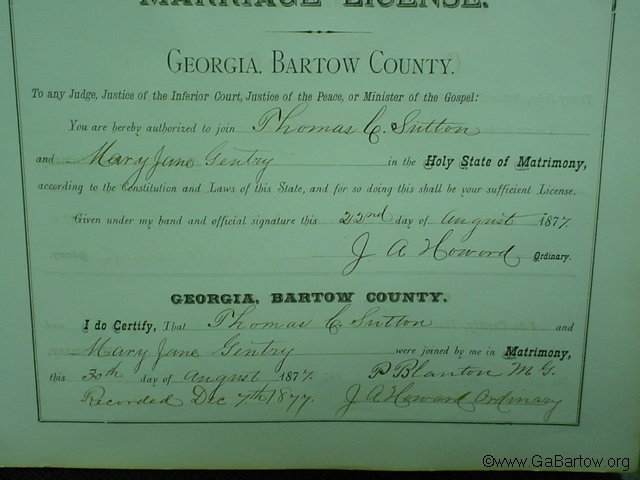 MARRIAGE LICENSE.
GEORGIA, BARTOW COUNTY.
To any Judge, Justice of the Inferior Court, Justice of the Peace, or Minister of the Gospel:
You are hereby authorized to join Thomas C. Sutton
and Mary Jane Gentry in the Holy State of Matrimony,
according to the Constitution and Laws of this State, and for so doing this shall be your sufficient License.
Given under my hand and official signature this 22nd day of August 1877.
J. A Howard Ordinary.
GEORGIA, BARTOW COUNTY.
I do Certify, That Thomas C. Sutton and
Mary Jane Gentry were joined by me in Matrimony,
this 30th day of August 1877. P Blanton M G.
Recorded Dec 7th 1877. J A Howard Ordinary
©www.GaBartow.org